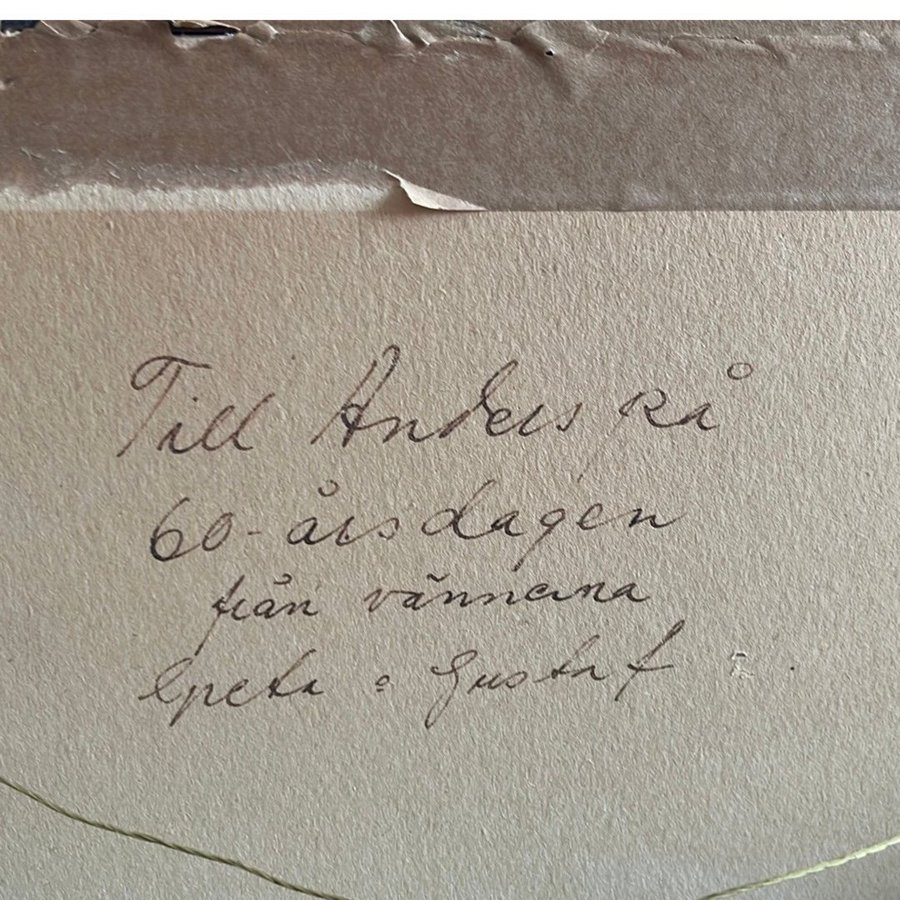 Till Anders på
60-årsdagen
från vännerna
Greta o Gustaf